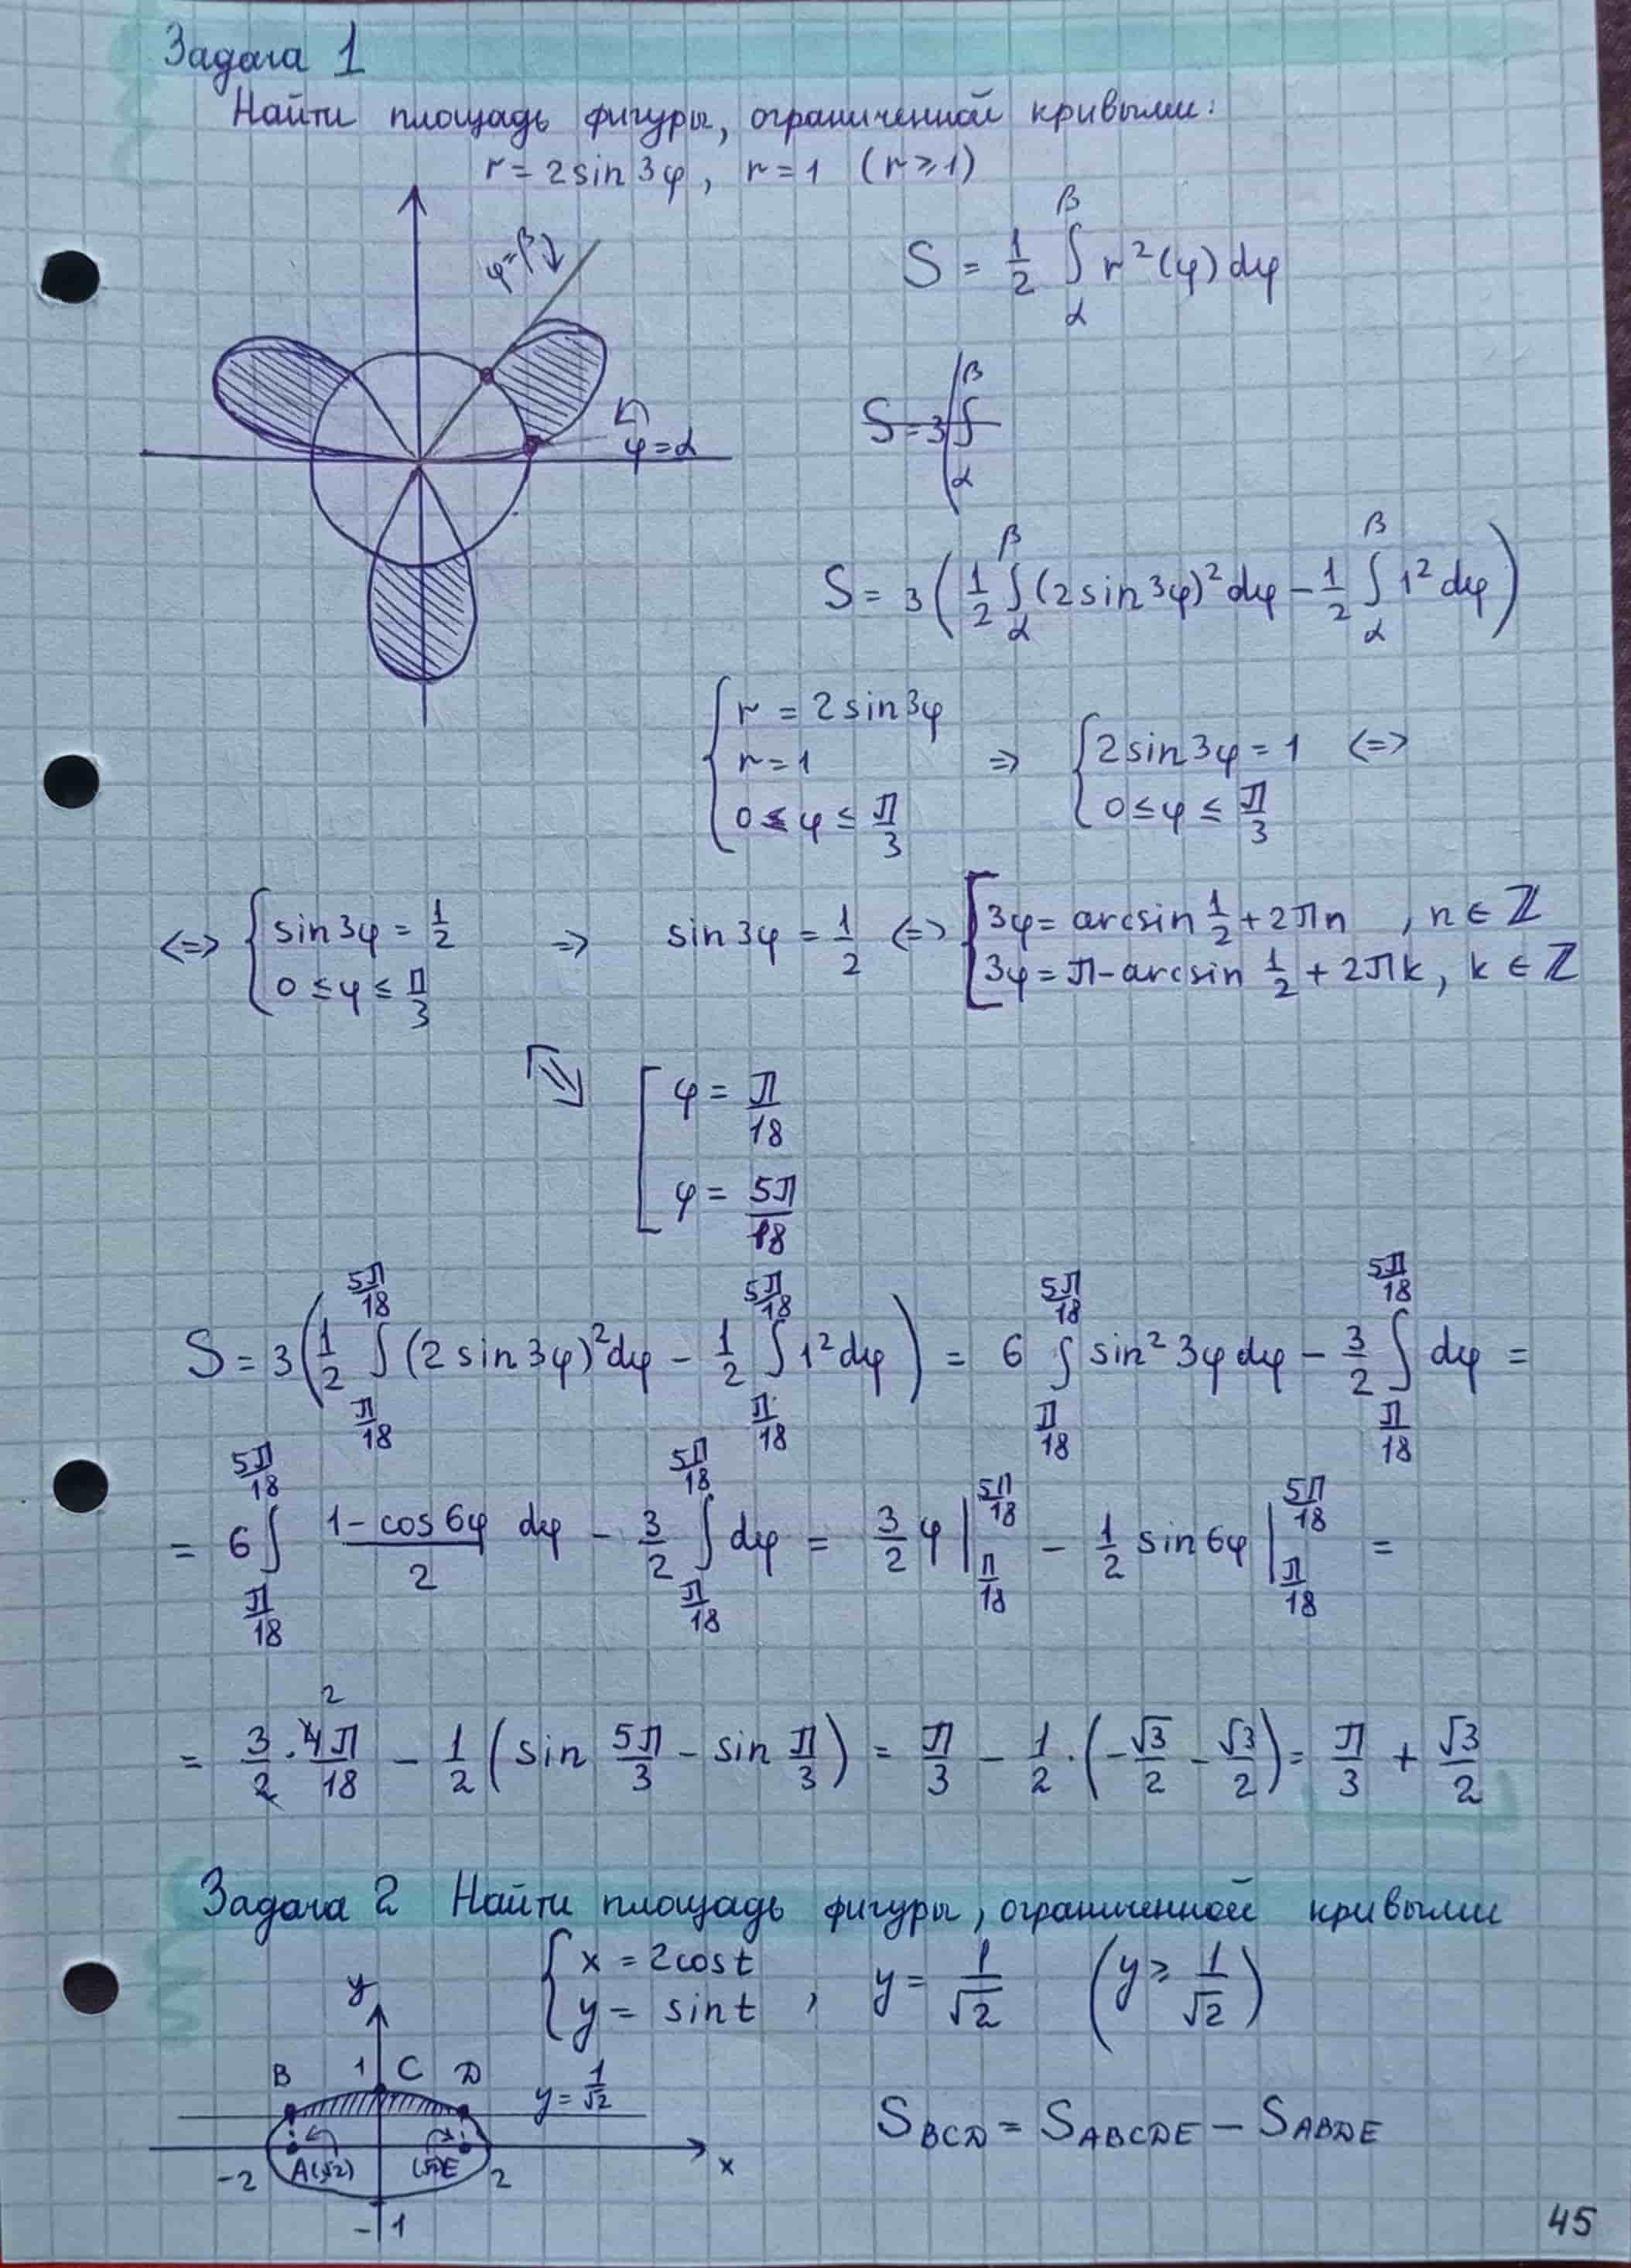 Задача 1
Найти площадь фигуры, ограниченной кривыми:
r = 2sin3φ, r = 1 (r ⩾ 1)
φ=β
φ=α
S = 1/2 ∫_α^β r²(φ)dφ
S = 3 ∫_α^β
S = 3(1/2 ∫_α^β (2sin3φ)²dφ − 1/2 ∫_α^β 1²dφ)
{ r = 2sin3φ
r = 1 ⇒ { 2sin3φ = 1 <=>
0 ≤ φ ≤ π/3 0 ≤ φ ≤ π/3
<=> { sin3φ = 1/2 ⇒ sin3φ = 1/2 <=> [ 3φ = arcsin 1/2 + 2πn, n ∈ ℤ
0 ≤ φ ≤ π/3 3φ = π − arcsin 1/2 + 2πk, k ∈ ℤ
⇔ [ φ = π/18
φ = 5π/18
S = 3(1/2 ∫_{π/18}^{5π/18} (2sin3φ)²dφ − 1/2 ∫_{π/18}^{5π/18} 1²dφ) = 6 ∫_{π/18}^{5π/18} sin²3φdφ − 3/2 ∫_{π/18}^{5π/18} dφ =
= 6 ∫_{π/18}^{5π/18} (1 − cos6φ)/2 dφ − 3/2 ∫_{π/18}^{5π/18} dφ = 3/2 φ |_{π/18}^{5π/18} − 1/2 sin6φ |_{π/18}^{5π/18} =
= 3/2 · 4π/18 − 1/2 (sin 5π/3 − sin π/3) = π/3 − 1/2 · (−√3/2 − √3/2) = π/3 + √3/2
2
Задача 2 Найти площадь фигуры, ограниченной кривыми
{ x = 2cost
y = sint , y = 1/√2 (y ⩾ 1/√2)
y
B 1 C D y = 1/√2
S_BCD = S_ABCDE − S_ABDE
-2 A(√2) (√2)E 2 x
-1
45